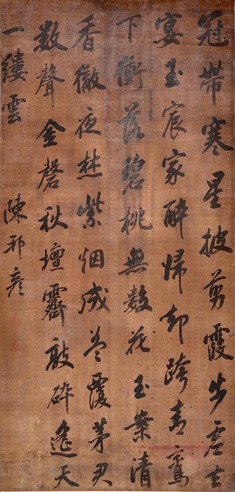 冠帶寒星披剪霞步虛去
宴玉宸家醉歸却跨青鸞
下銜落碧桃無數花玉案清
香徹夜焚紫烟成蓋覆茅君
數聲金磬秋壇霽敲碎遙天
一縷雲 陳邦彥